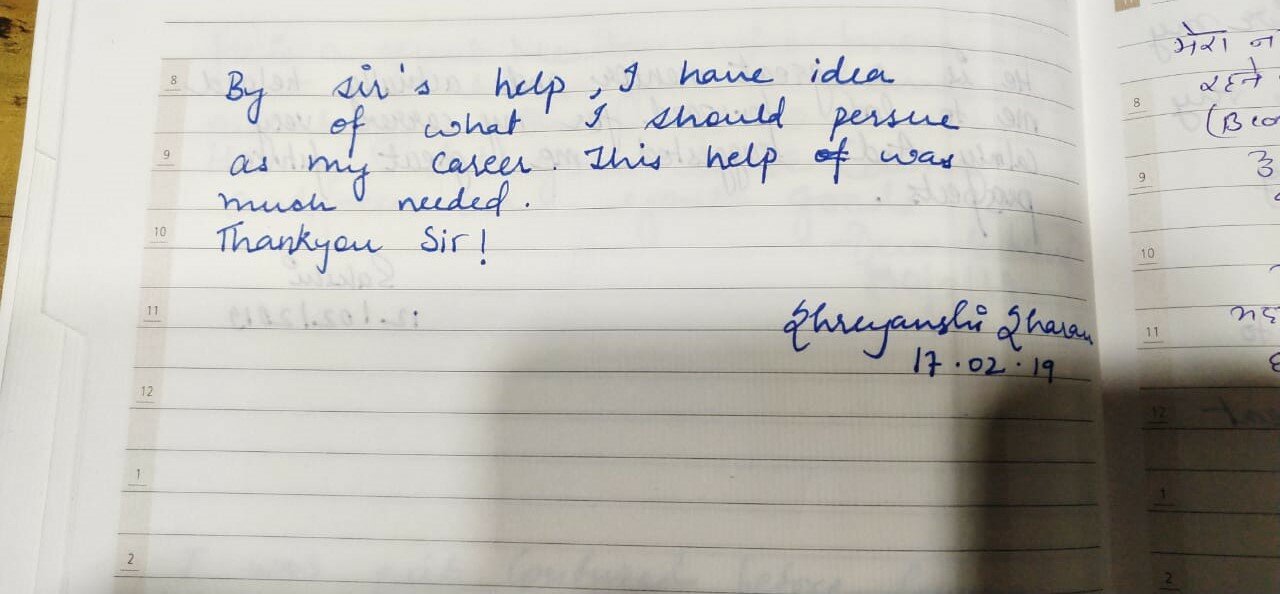 8
By sir's help, I have idea
of what I should persue
9
as my career. This help of was
much needed.
10
Thankyou Sir!
11
Shreyanshi Sharan
17.02.19
12
1
2
मेरा न
रहने
8
(B.co
9
10
11
12
1
2